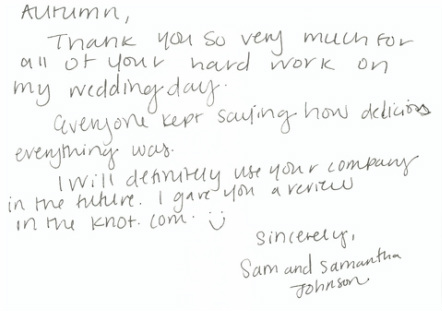 Autumn,
Thank you so very much for
all of your hard work on
my wedding day.
Everyone kept saying how delicious
everything was.
I will definitely use your company
in the future. I gave you a review
in the knot.com. :)
Sincerely,
Sam and Samantha
Johnson